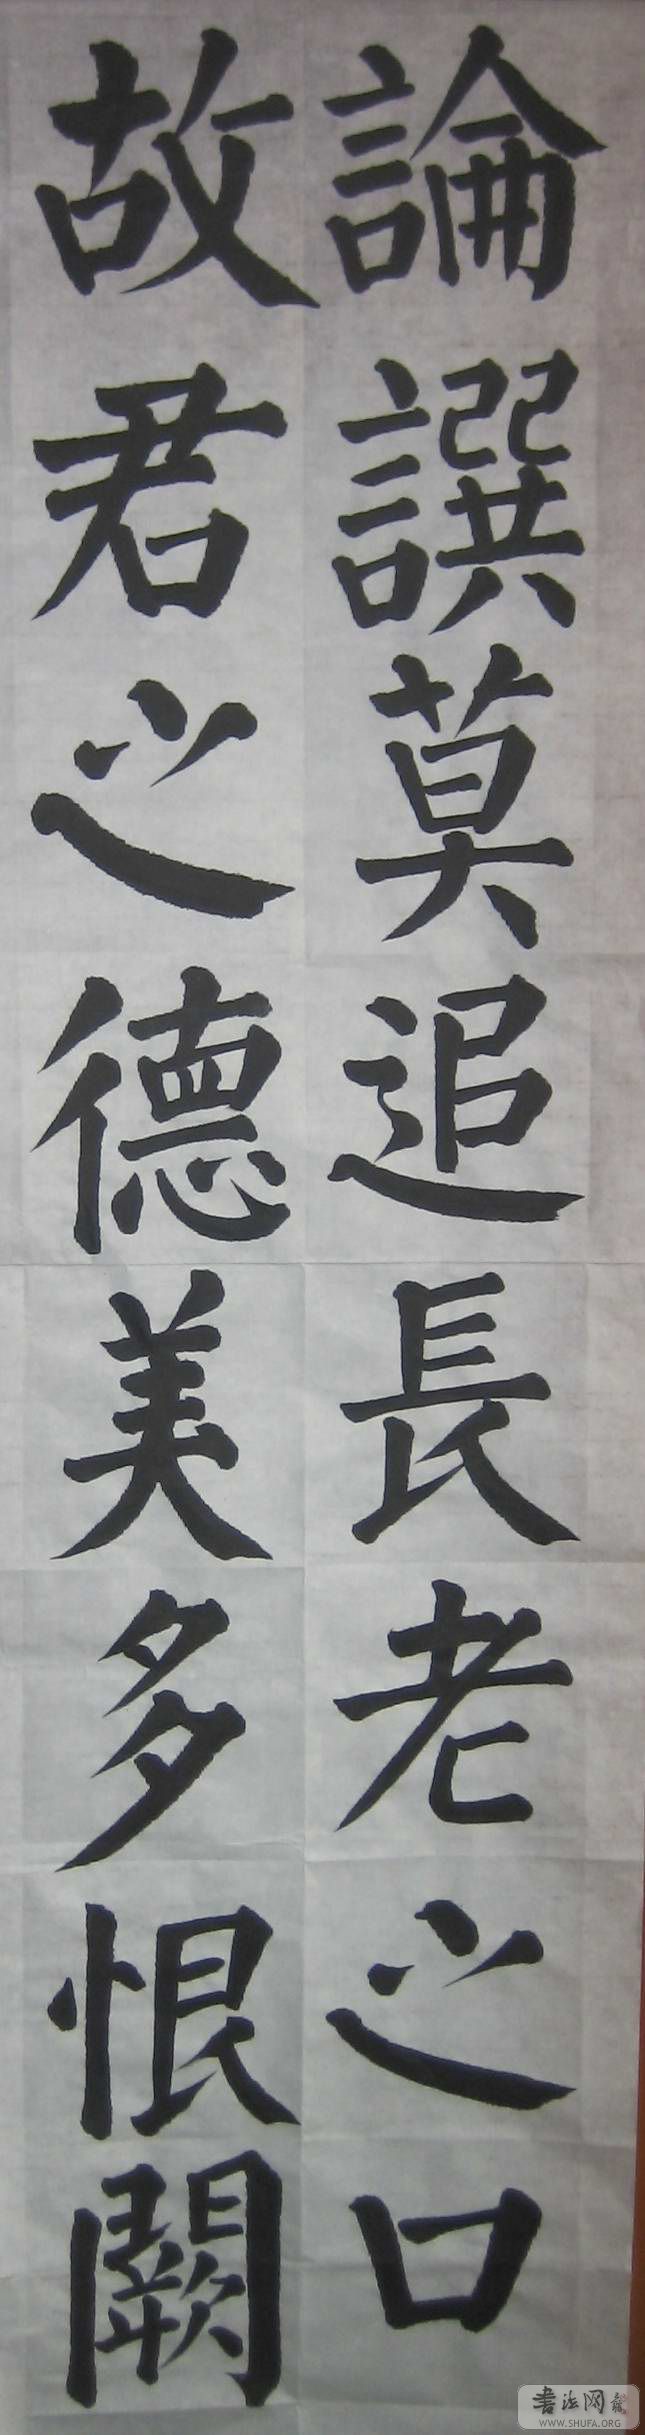 論譔莫追長老之口
故君之德美多恨闕
書法网
WWW.SHUFA.ORG